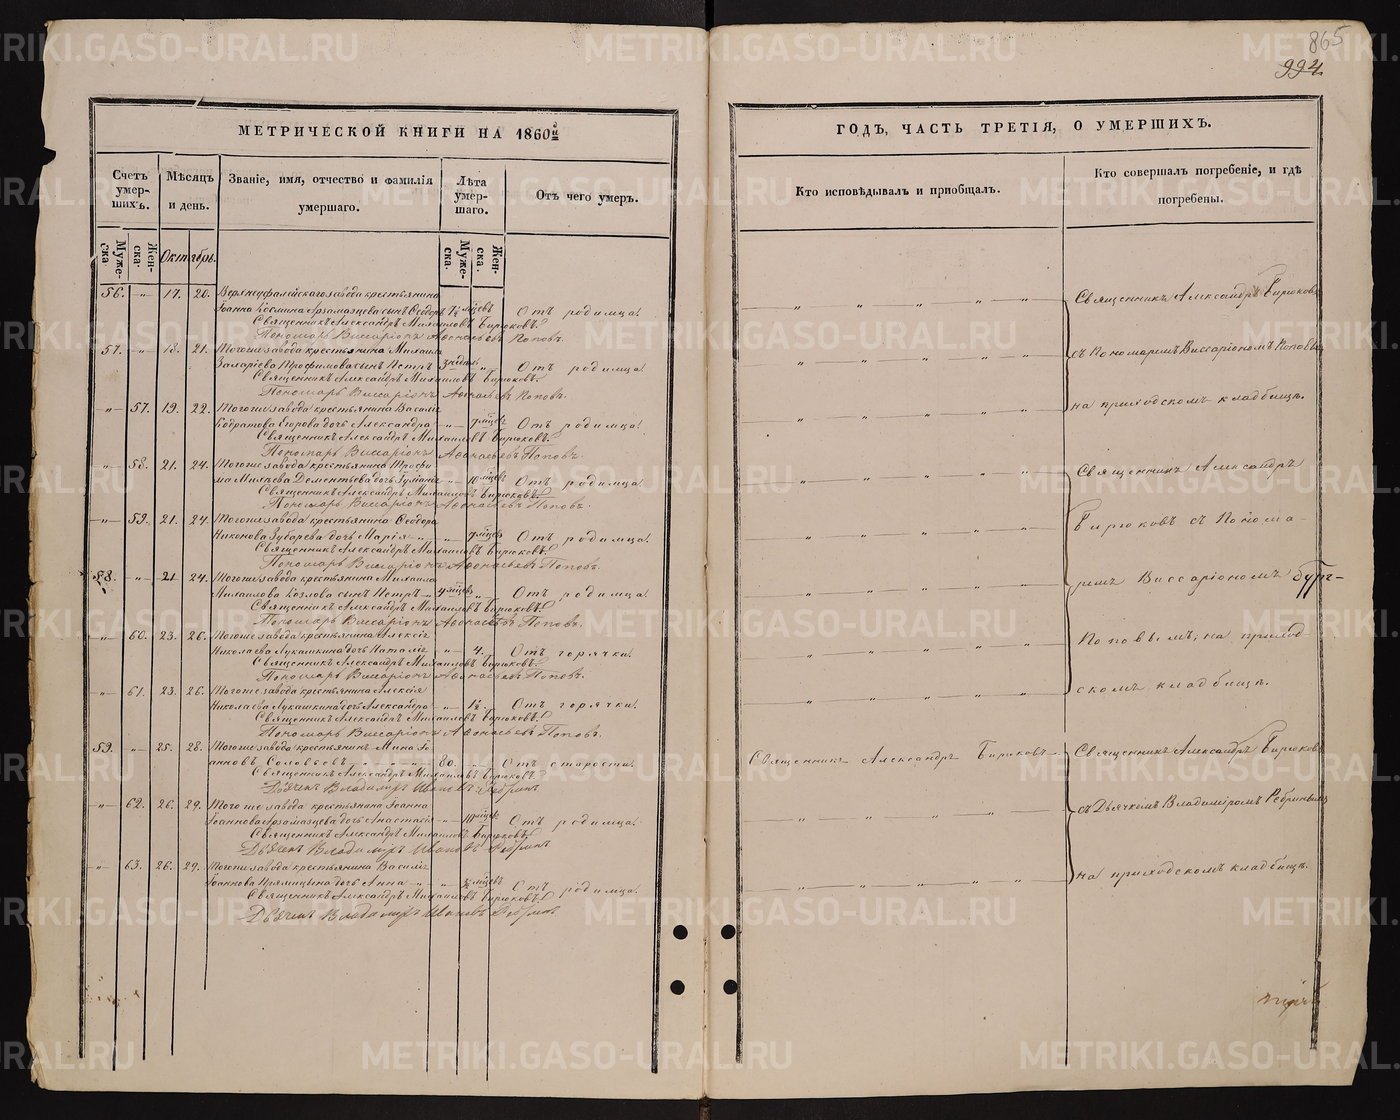 865
994.
МЕТРИЧЕСКОЙ КНИГИ НА 1860й
Счетъ умерших.
Мѣсяцъ и день.
Званіе, имя, отчество и фамилія умершаго.
Лѣта умершаго.
Отъ чего умеръ.
Мужеска.
Женска.
Октябрь.
Мужеска.
Женска.
56. " 17. 20. Верхнеуфалейскаго завода крестьянина
Іоанна Космина Арзамазцева сынъ Ѳеодоръ мѣсяцевъ Отъ родимца.
Священникъ Александръ Михаиловъ Бирюковъ.
Пономарь Виссаріонъ Аѳонасьевъ Поповъ.
57. " 18. 21. Тогоже завода крестьянина Михаила
Трофимова сынъ Петръ 3 недѣль " Отъ родимца.
Священникъ Александръ Михаиловъ Бирюковъ.
Пономарь Виссаріонъ Аѳонасьевъ Поповъ.
" 57. 19. 22. Тогоже завода крестьянина Василія
Кодратова Егорова дочь Александра " Отъ родимца.
Священникъ Александръ Михаиловъ Бирюковъ.
Пономарь Виссаріонъ Аѳонасьевъ Поповъ.
" 58. 21. 24. Тогоже завода крестьянина Трофи
ма Дементьева дочь Іуліанія " 10 мѣсяцевъ Отъ родимца.
Священникъ Александръ Михаиловъ Бирюковъ.
Пономарь Виссаріонъ Аѳонасьевъ Поповъ.
" 59. 21. 24. Тогоже завода крестьянина Ѳеодора
Никонова Зубарева дочь Марія " Отъ родимца.
Священникъ Александръ Михаиловъ Бирюковъ.
Пономарь Виссаріонъ Аѳонасьевъ Поповъ.
58. " 21 24. Тогоже завода крестьянина Михаила
Михаилова Козлова сынъ Петръ 4 мѣсяцевъ " Отъ родимца.
Священникъ Александръ Михаиловъ Бирюковъ.
Пономарь Виссаріонъ Аѳонасьевъ Поповъ.
" 60. 23. 26. Тогоже завода крестьянина Алексія
Николаева Лукашкина дочь Наталія " 4. Отъ горячки.
Священникъ Александръ Михаиловъ Бирюковъ.
Пономарь Виссаріонъ Аѳонасьевъ Поповъ.
" 61. 23. 26. Тогоже завода крестьянина Алексія
Николаева Лукашкина дочь Александра " 1½. Отъ горячки.
Священникъ Александръ Михаиловъ Бирюковъ.
Пономарь Виссаріонъ Аѳонасьевъ Поповъ.
59. " 25. 28. Тогоже завода крестьянинъ Мина Іо
анновъ Соловьевъ 80. " Отъ старости.
Священникъ Александръ Михаиловъ Бирюковъ.
Дьячекъ Владимиръ Ивановъ Ребринъ
" 62. 26. 29. Тогоже завода крестьянина Іоанна
Іоаннова Арзамазцева дочь Анастасія " 10 мѣсяц. Отъ родимца.
Священникъ Александръ Михаиловъ Бирюковъ.
Дьячекъ Владимиръ Ивановъ Ребринъ
" 63. 26. 29. Тогоже завода крестьянина Василія
Іоаннова Прямицына дочь Анна " мѣсяцевъ Отъ родимца.
Священникъ Александръ Михаиловъ Бирюковъ.
Дьячекъ Владимиръ Ивановъ Ребринъ
ГОДЪ, ЧАСТЬ ТРЕТІЯ, О УМЕРШИХЪ.
Кто исповѣдывалъ и пріобщалъ.
Кто совершалъ погребеніе, и гдѣ погребены.
Священникъ Александръ Бирюковъ
съ Пономаремъ Виссаріономъ Поповымъ
на приходскомъ кладбищѣ.
Священникъ Александръ
Бирюковъ съ Понома-
ремъ Виссаріономъ
Поповымъ, на приход
скомъ кладбищѣ.
Священникъ Александръ Бирюковъ
Священникъ Александръ Бирюковъ
съ Дьячкомъ Владиміромъ Ребринымъ
на приходскомъ кладбищѣ.
METRIKI.GASO-URAL.RU